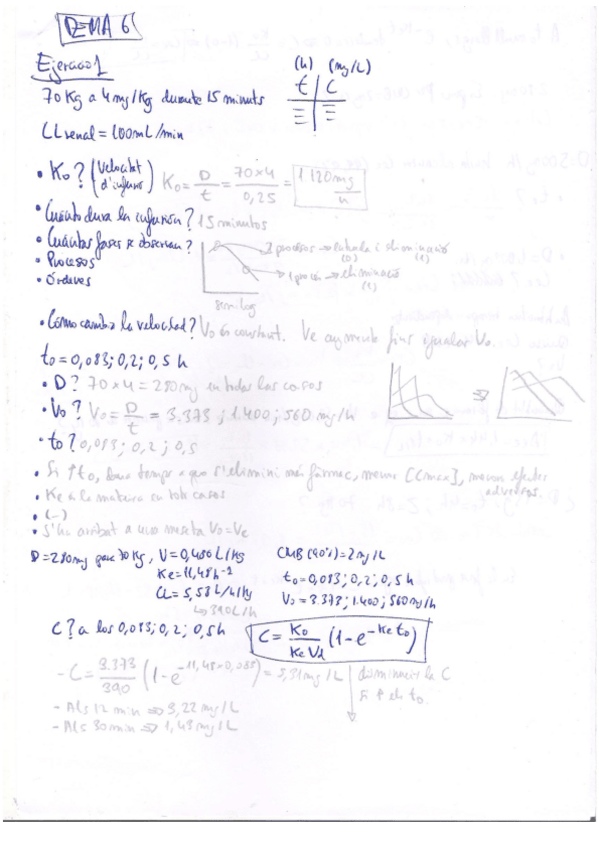 TEMA 6
Ejercicio 1
(h) (mg/L)
t C
70 Kg a 4 mg/Kg durante 15 minuts
CL renal = 100 mL/min
• K₀? (Velocitat d'infusió) K₀ = D/t = 70×4/0,25 = 1120 mg/h
• Cuánto dura la infusión? 15 minutos
• Cuántas fases se observan? 2 procesos → entrada i eliminació
(0) (1)
• Procesos 1 procés → eliminació
(1)
• Órdenes
semilog
• Cómo cambia la velocidad? V₀ és constant. Ve augmenta fins igualar V₀.
t₀ = 0,083; 0,2; 0,5 h
• D? 70×4 = 280 mg en todos los casos
• V₀? V₀ = D/t = 3.373; 1.400; 560 mg/h
• t₀? 0,083; 0,2; 0,5
• Si ↑ t₀, dona temps a que s'elimini més fármac, menor [Cmax], menors efectes adversos.
• Ke és la mateixa en tots casos
• (–)
• S'ha arribat a una meseta V₀=Ve
D = 280 mg para 70 Kg, V = 0,486 L/Kg CMB (90%) = 2 mg/L
Ke = 11,48 h⁻¹ t₀ = 0,083; 0,2; 0,5 h
CL = 5,58 L/h/Kg V₀ = 3.373; 1.400; 560 mg/h
↳ 390 L/h
C? a los 0,083; 0,2; 0,5 h C = K₀/KeVd (1-e^-Ke t₀)
- C = 3.373/390 (1-e^-11,48×0,083) = 5,31 mg/L disminueix la C
si ↑ el t₀.
- Als 12 min ⇒ 3,22 mg/L
- Als 30 min ⇒ 1,43 mg/L